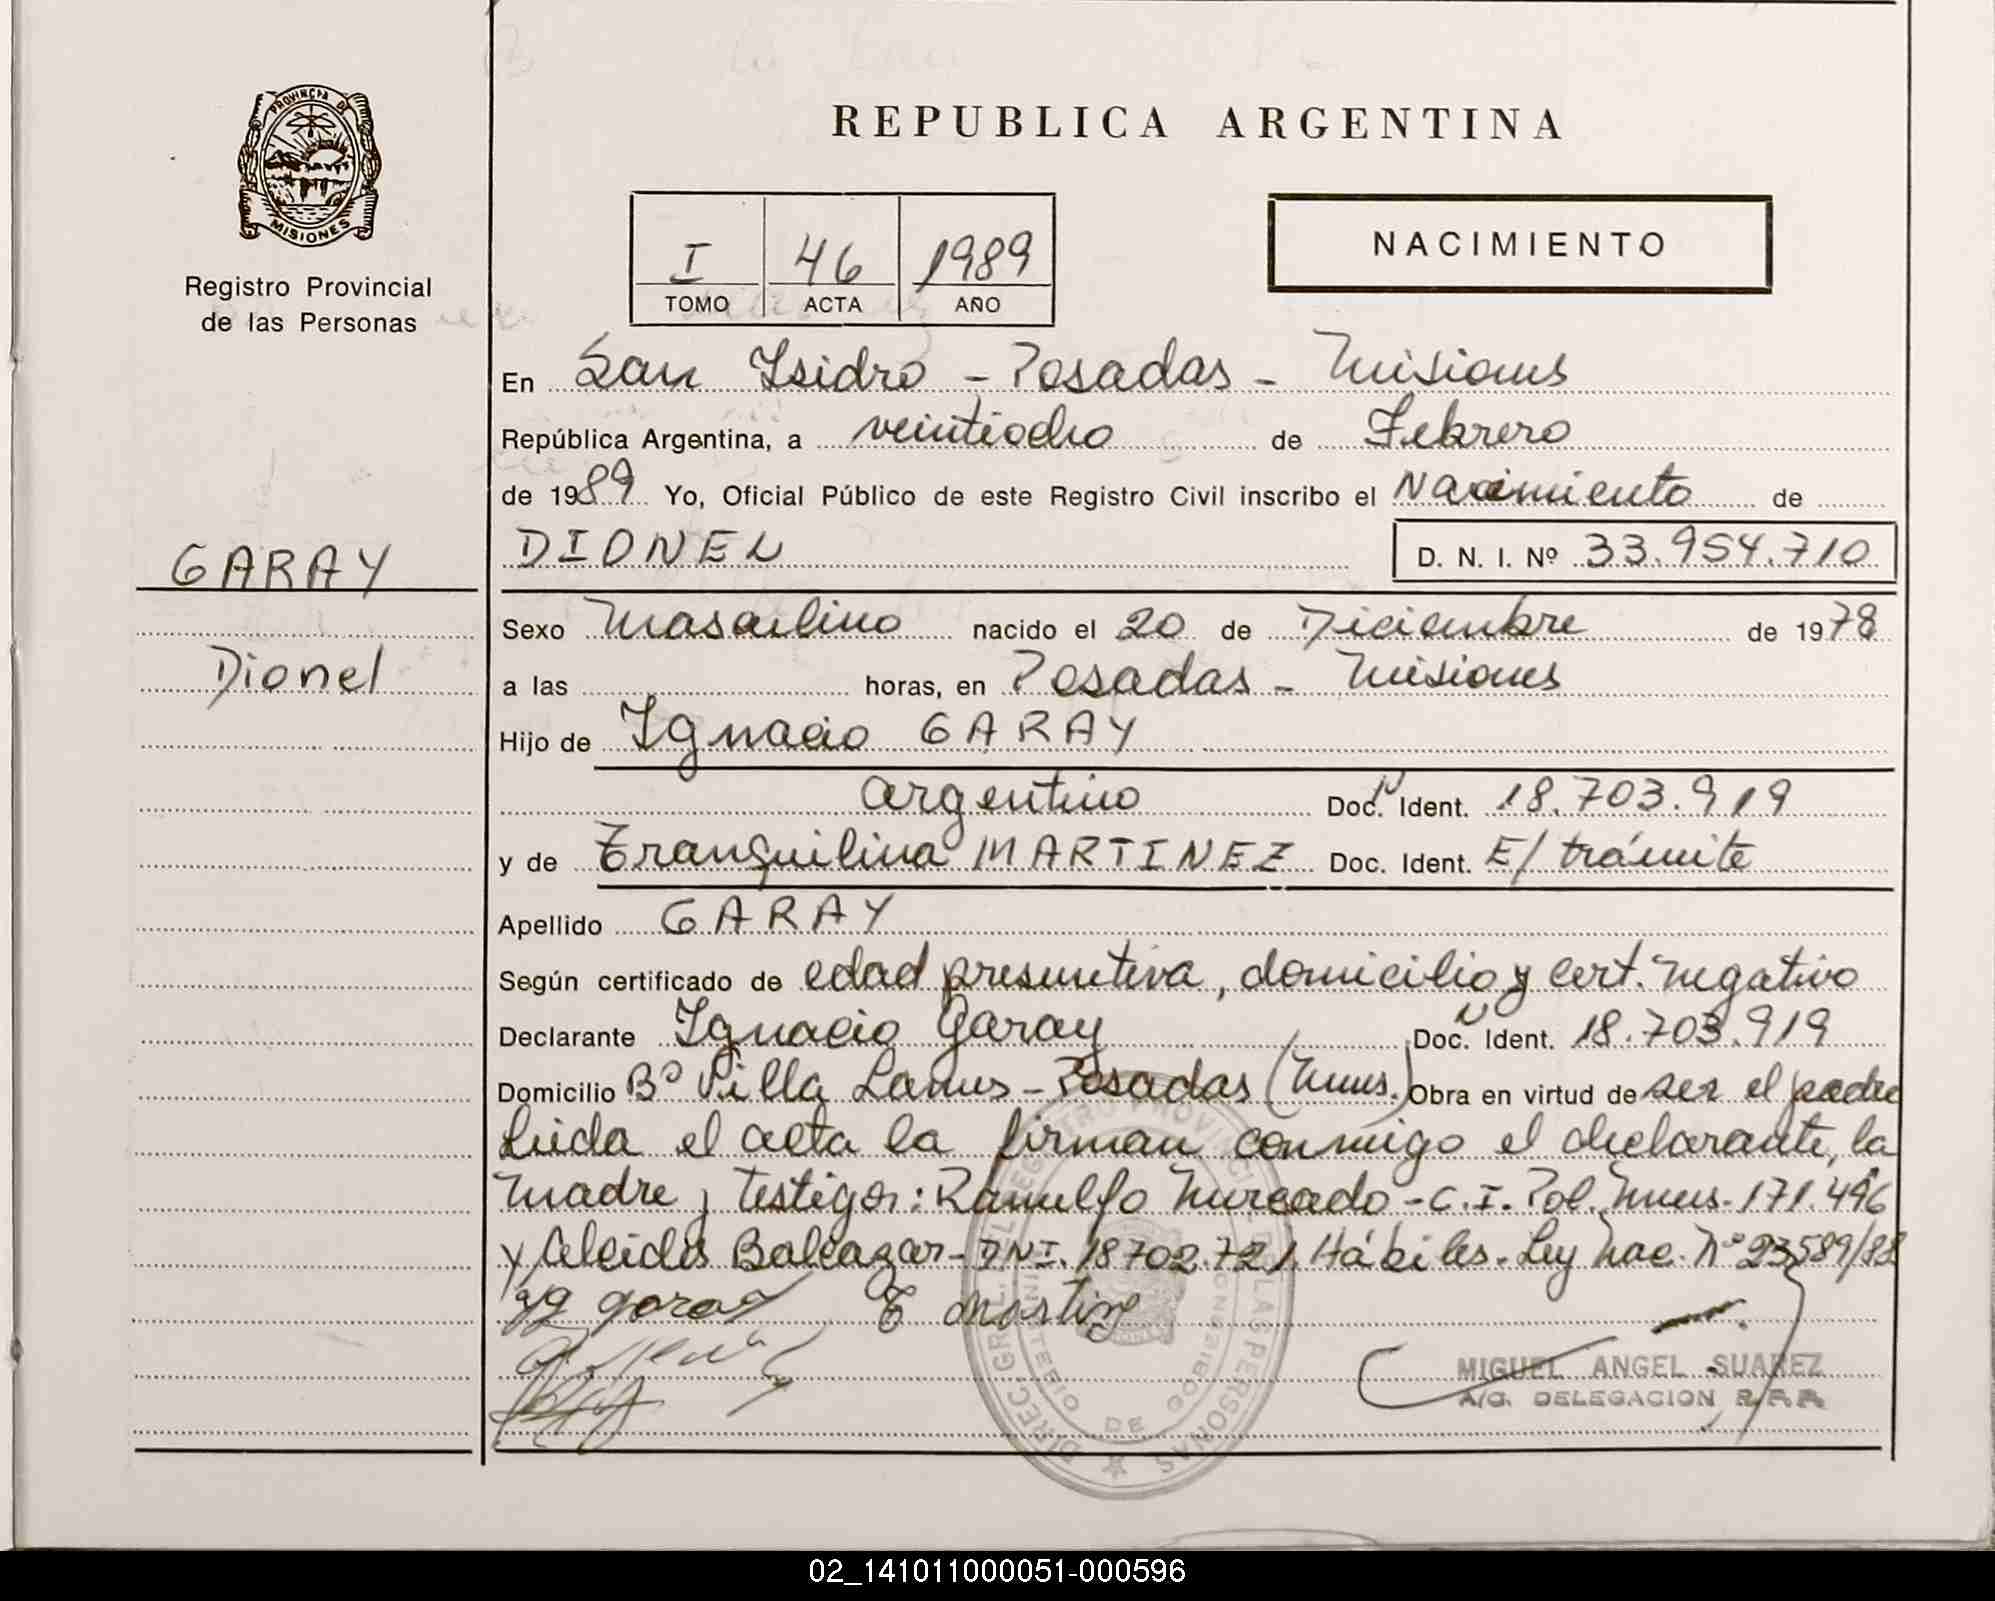 PROVINCIA DE
MISIONES
Registro Provincial
de las Personas
GARAY
Dionel
REPUBLICA ARGENTINA
I 46 1989
TOMO ACTA AÑO
NACIMIENTO
En San Isidro - Posadas - Misiones
República Argentina, a veintiocho de Febrero
de 1989 Yo, Oficial Público de este Registro Civil inscribo el Nacimiento de
DIONEL D. N. I. Nº 33.954.710
Sexo Masculino nacido el 20 de Diciembre de 1978
a las horas, en Posadas - Misiones
Hijo de Ignacio GARAY
argentino Doc. Ident. 18.703.919
y de Tranquilina MARTINEZ Doc. Ident. E/ trámite
Apellido GARAY
Según certificado de edad presuntiva, domicilio y cert. negativo
Declarante Ignacio Garay Doc. Ident. 18.703.919
Domicilio Bº Villa Lanus - Posadas (Mnes.) Obra en virtud de ser el padre
Leida el acta la firman conmigo el declarante, la
madre y testigos: Ranulfo Mercado - C.I. Pol. Mnes. 171.496
y Alcides Balcazar - DNI. 18702.721. Hábiles. Ley Nac. Nº 23589/88
Ig garay E martinz
MIGUEL ANGEL SUAREZ
A/C. DELEGACION R.P.P.
DIREC. GRAL. DEL REGISTRO PROVINCIAL DE LAS PERSONAS
MINISTERIO DE GOBIERNO
02_141011000051-000596